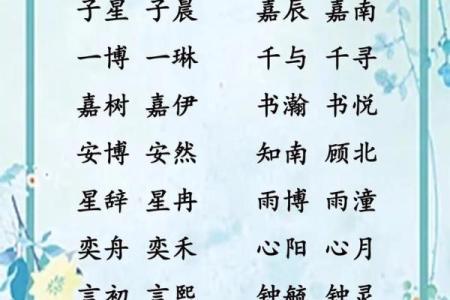 子星 子晨 嘉辰 嘉南
一博 一琳 千与 千寻
嘉树 嘉伊 书瀚 书悦
安博 安然 知南 顾北
星辞 星冉 雨博 雨潼
奕舟 奕禾 心阳 心月
言初 言熙 钟毓 钟灵